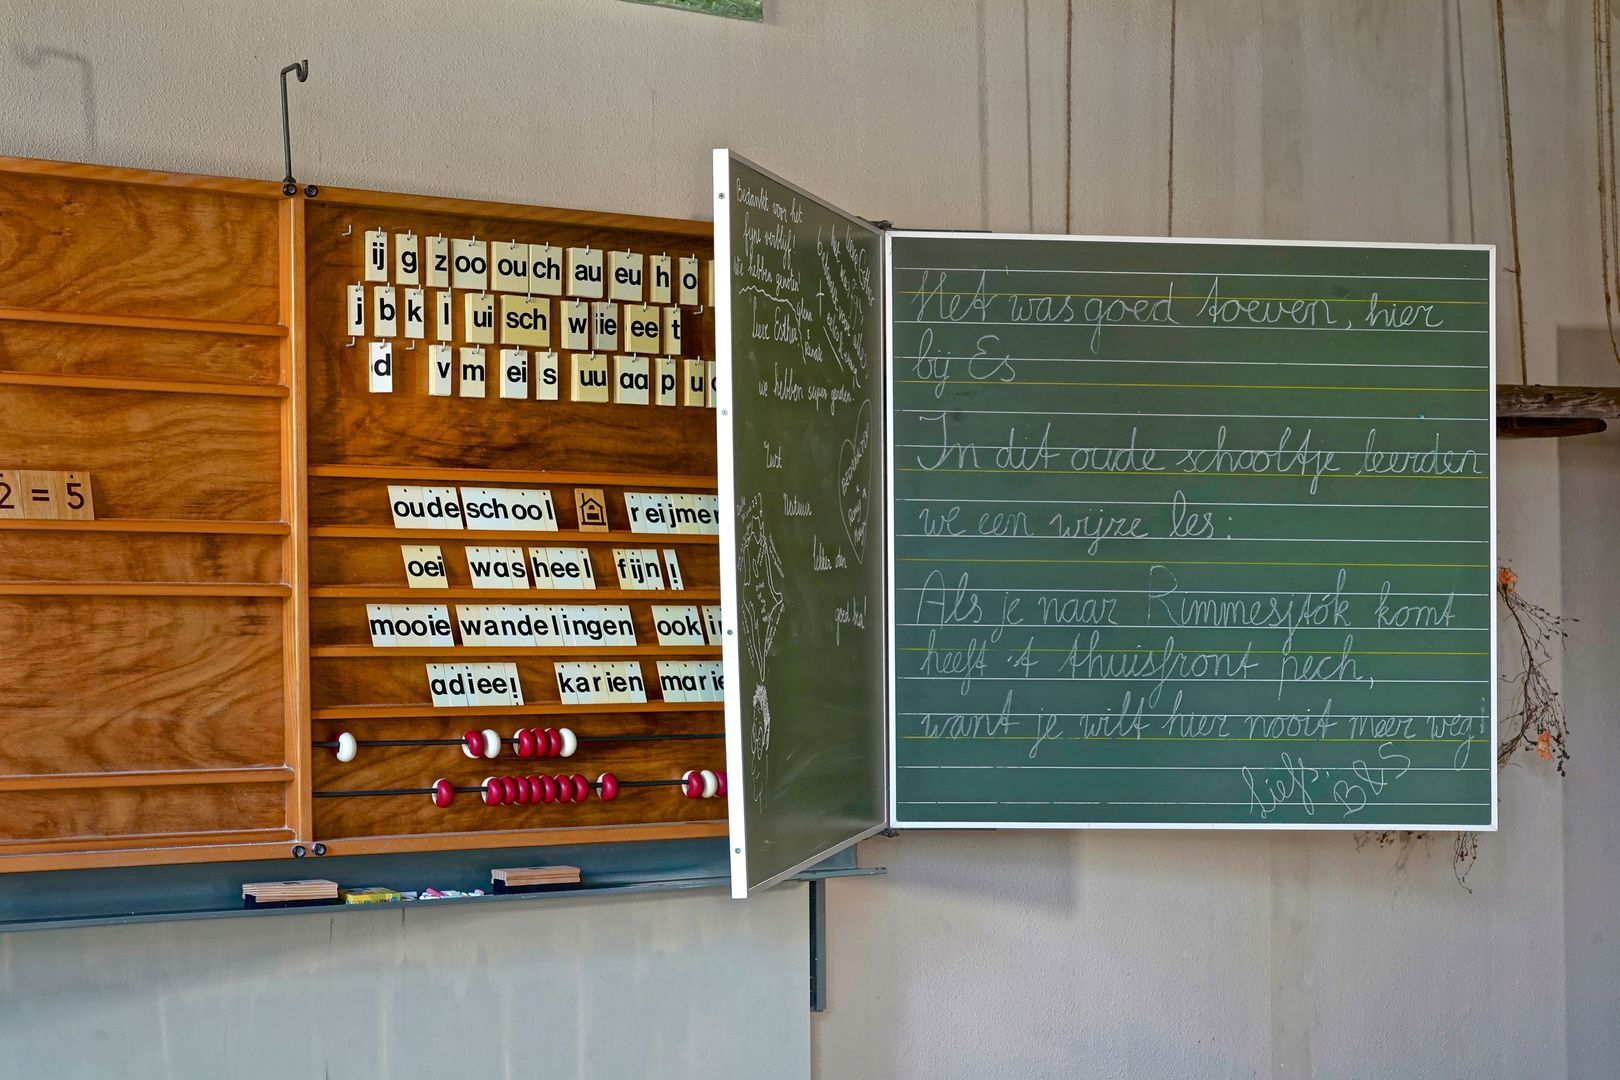 2 = 5
ij g z oo ou ch au eu h o
j b k l ui sch w ie ee t
d v m ei s uu aa p u
oude school reijmer
oei was heel fijn!
mooie wandelingen ook in
adiee! karien marie
Bedankt voor het
fijne verblijf!
we hebben genoten!
lieve Esther,
we hebben super genoten!
Rust
Natuur
lekker eten
goed bed!
Het was goed toeven, hier
bij Es
In dit oude schooltje leerden
we een wijze les:
Als je naar Rimmesjtók komt
heeft 't thuisfront pech,
want je wilt hier nooit meer weg!
Liefs. B&S